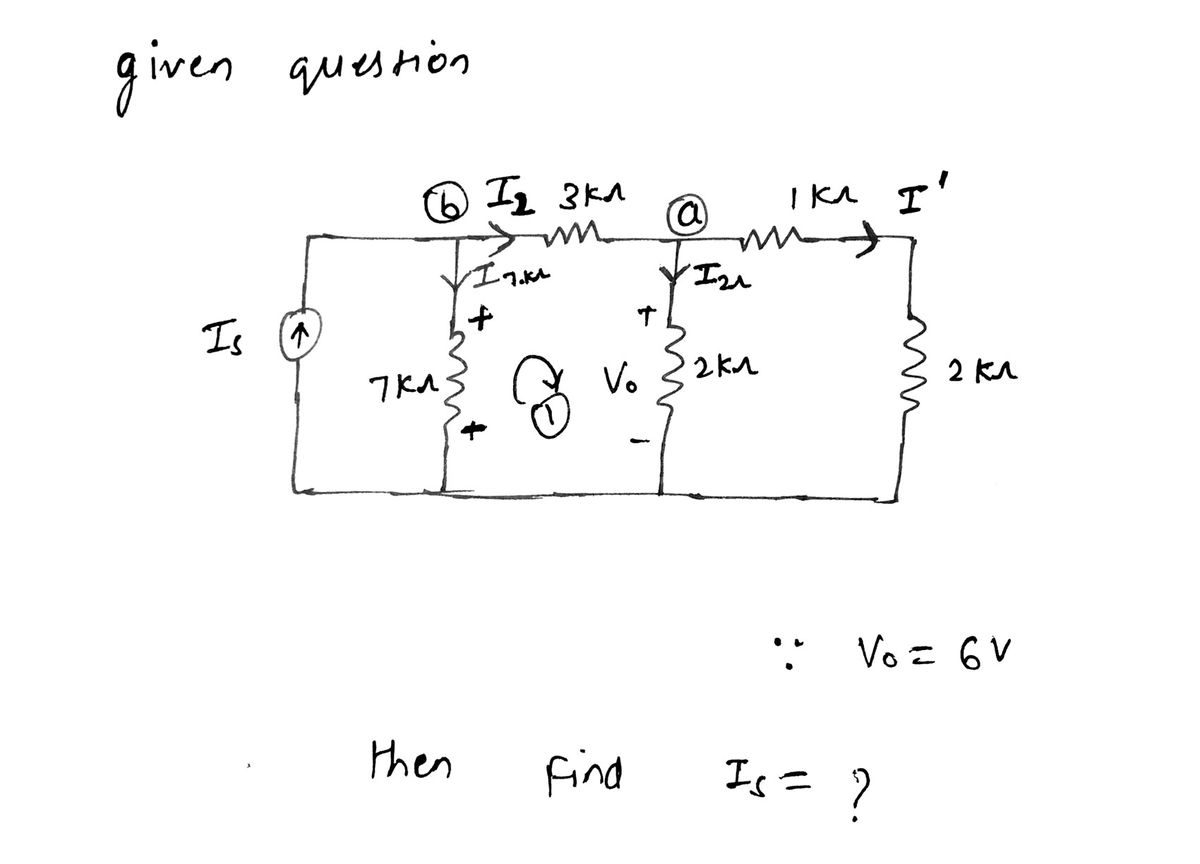 given question
ⓑ I₂ 3kΩ ⓐ 1kΩ I'
I₇.kΩ I₂Ω
Is + +
7kΩ ① V₀ 2kΩ 2kΩ
+ −
∵ V₀ = 6V
then find Is = ?